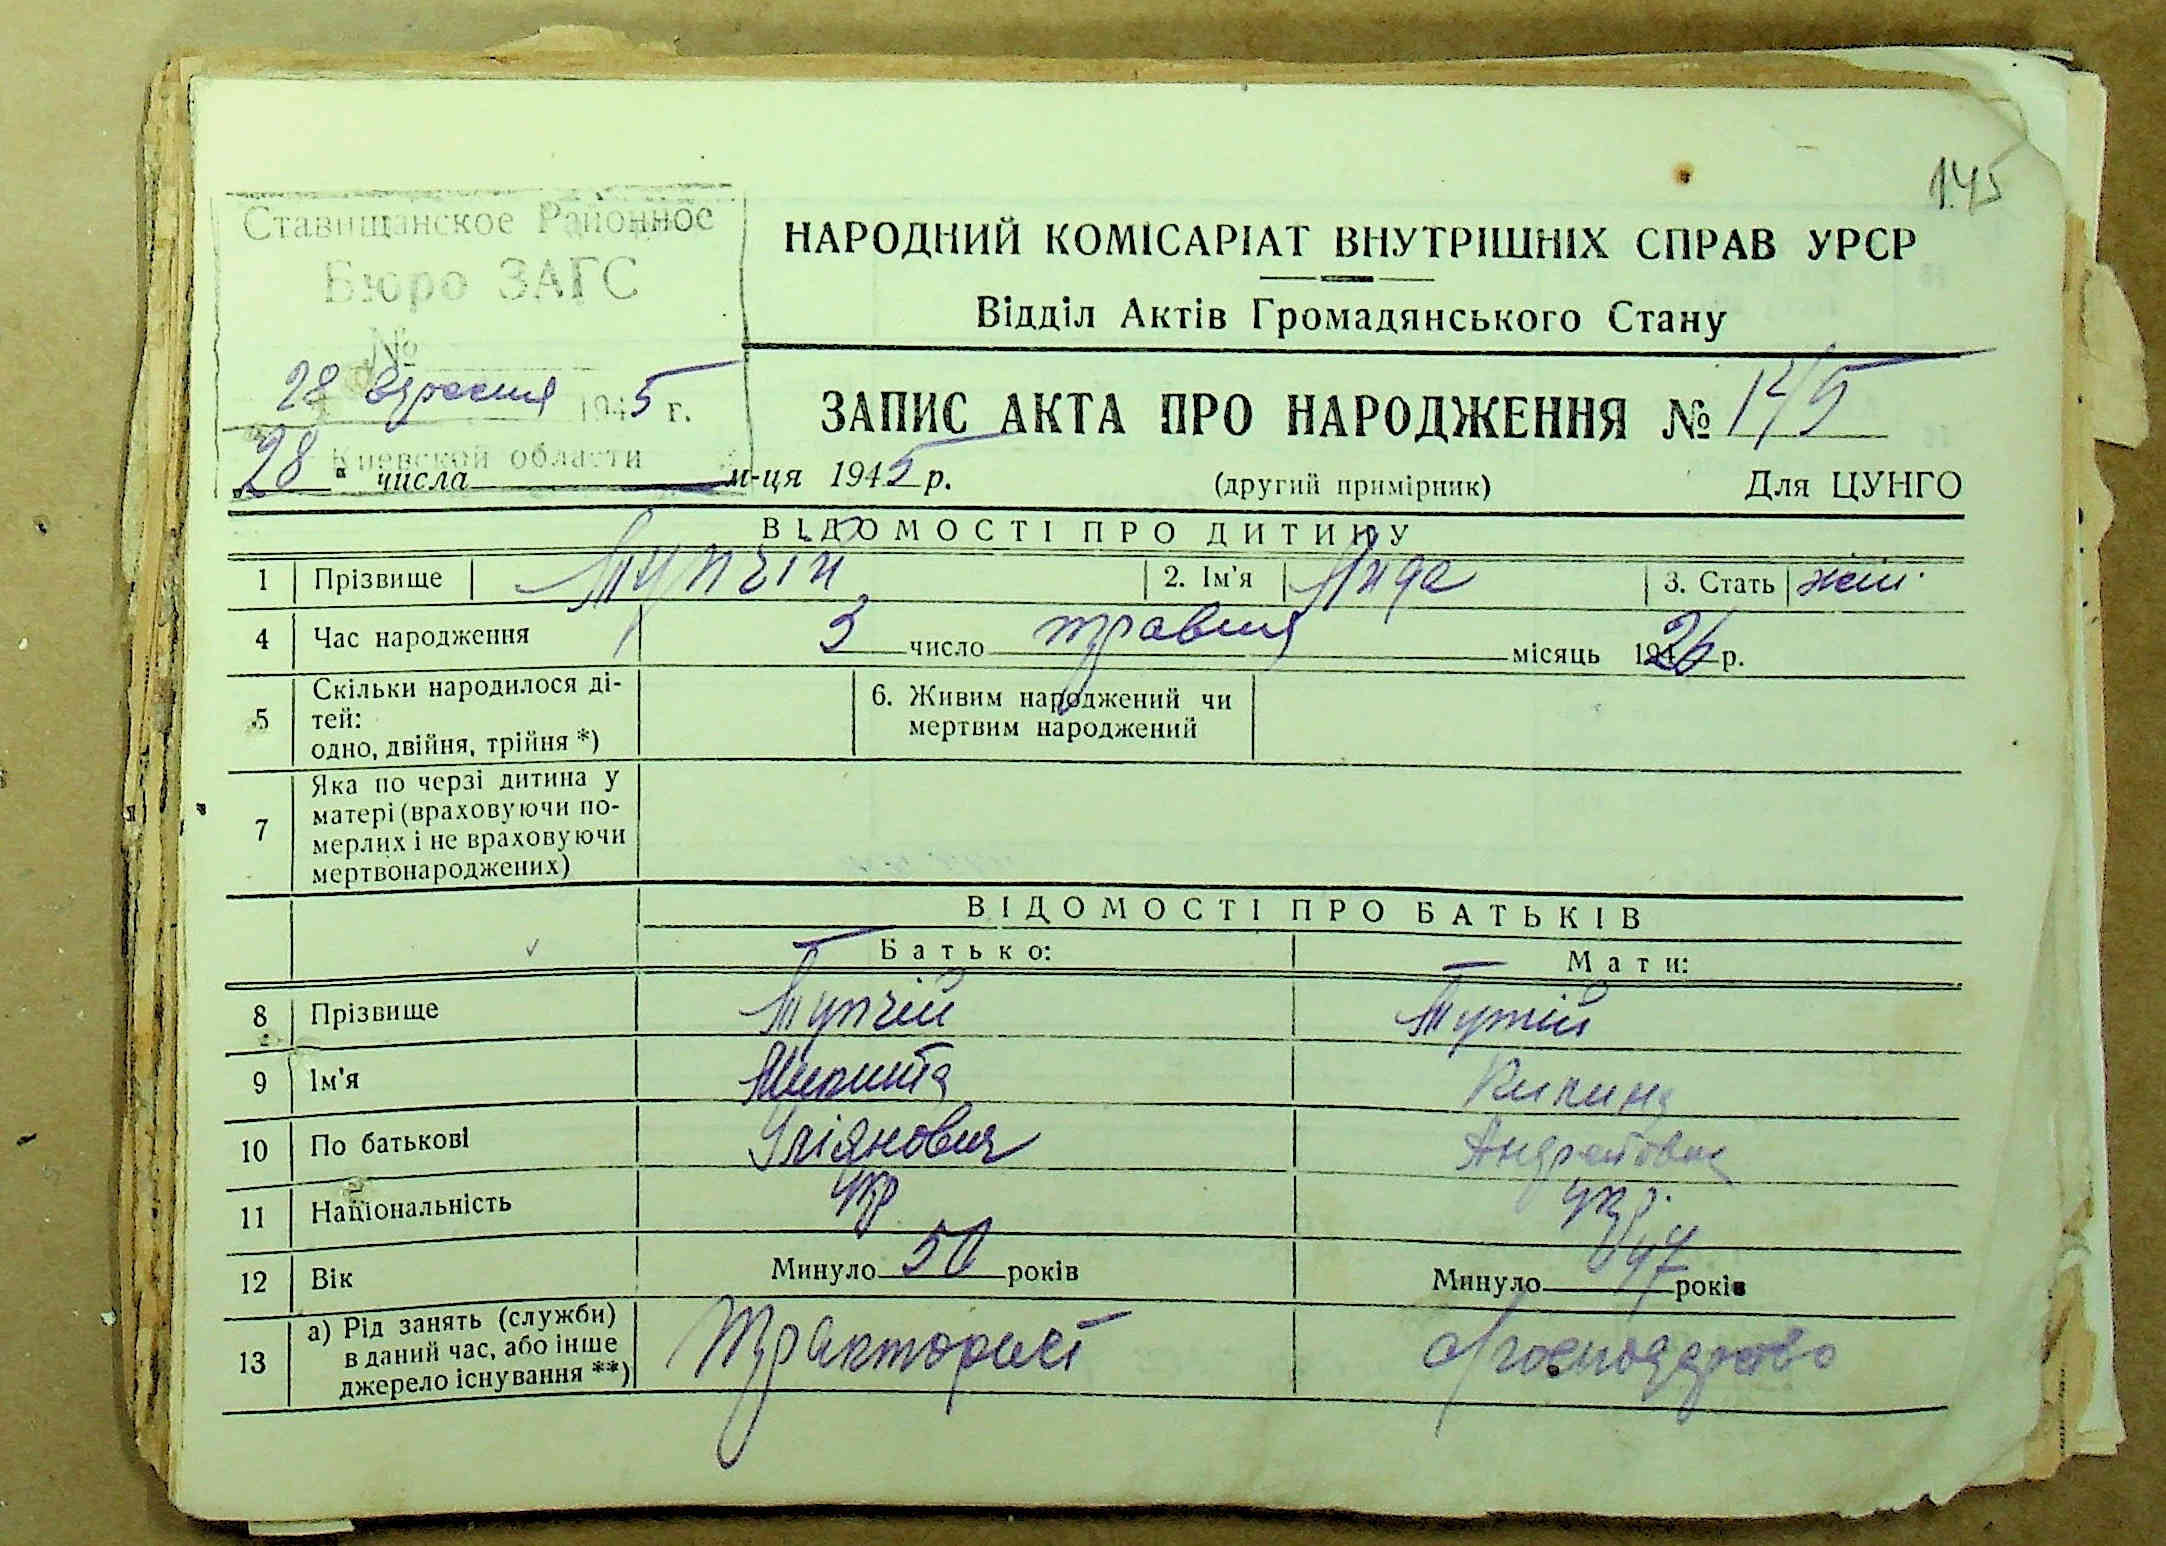 145
Ставищанское Районное
Бюро ЗАГС
№
28 вересня 1945 г.
Киевской области
НАРОДНИЙ КОМІСАРІАТ ВНУТРІШНІХ СПРАВ УРСР
Відділ Актів Громадянського Стану
ЗАПИС АКТА ПРО НАРОДЖЕННЯ № 145
„28“ числа м-ця 1945 р. (другий примірник) Для ЦУНГО
ВІДОМОСТІ ПРО ДИТИНУ
1 Прізвище Тупчій 2. Ім'я Ліда 3. Стать жін.
4 Час народження 3 число травня місяць 1926 р.
5 Скільки народилося ді-
тей:
одно, двійня, трійня *)
6. Живим народжений чи
мертвим народжений
7 Яка по черзі дитина у
матері (враховуючи по-
мерлих і не враховуючи
мертвонароджених)
ВІДОМОСТІ ПРО БАТЬКІВ
Батько: Мати:
8 Прізвище Тупчій Тупчій
9 Ім'я Микита
10 По батькові Уліянович Андреївна
11 Національність укр укр.
12 Вік Минуло 50 років Минуло 47 років
13 а) Рід занять (службы)
в даний час, або інше
джерело існування **)
Тракторист господарство